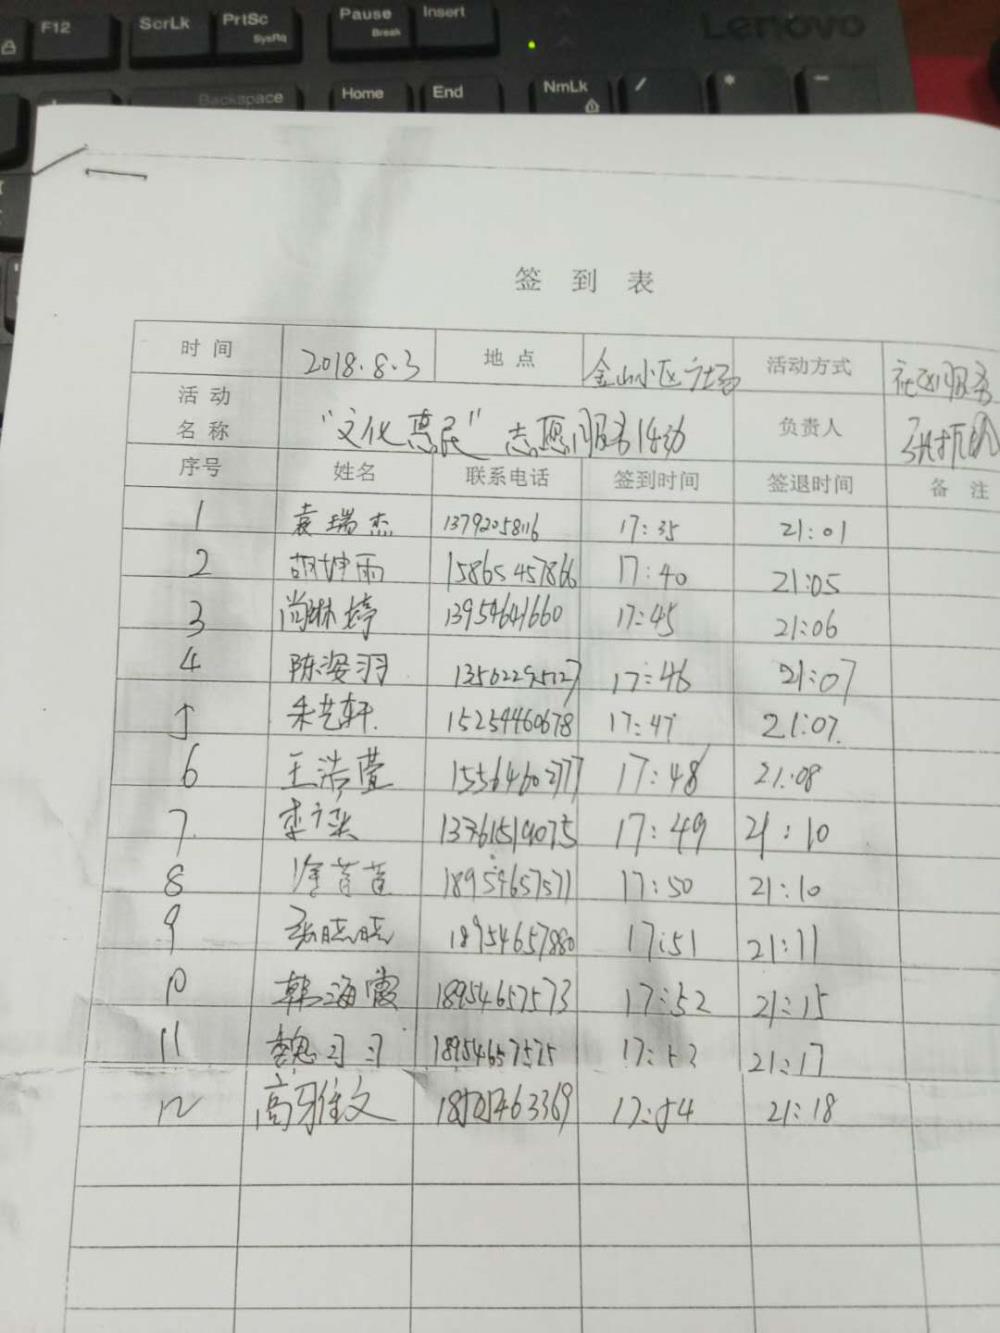 F12 ScrLk PrtSc SysRq Pause Break Insert
Lenovo
Backspace Home End NmLk / * -
签 到 表
时 间 2018.8.3 地 点 金山小区广场 活动方式 社区服务
活 动
名 称 “文化惠民”志愿服务活动 负责人
序号 姓名 联系电话 签到时间 签退时间 备 注
1 袁瑞杰 13792058116 17:35 21:01
2 胡坤雨 15865457866 17:40 21:05
3 尚琳婷 13954641660 17:45 21:06
4 陈姿羽 13562295127 17:46 21:07
5 朱艺轩. 15254460678 17:47 21:07.
6 王浩萱 15564602777 17:48 21:08
7 17:49 21:10
8 18954657571 17:50 21:10
9 张晓晓 18954657880 17:51 21:11
10 韩海霞 18954657573 17:52 21:15
11 魏习习 18954657575 17:53 21:17
12 高雅文 17:54 21:18